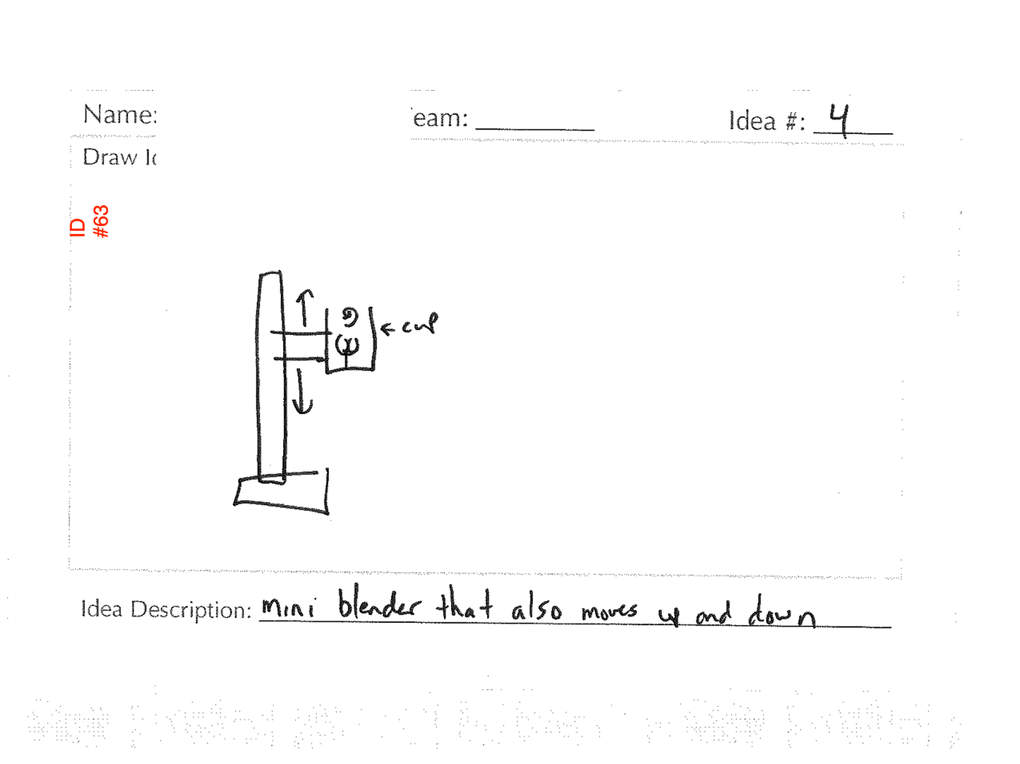 Name: eam: Idea #: 4
Draw Id
ID
#63
← cup
Idea Description: mini blender that also moves up and down